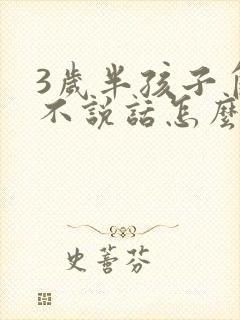 3歲半孩子
不說話怎麼
史蒼芬